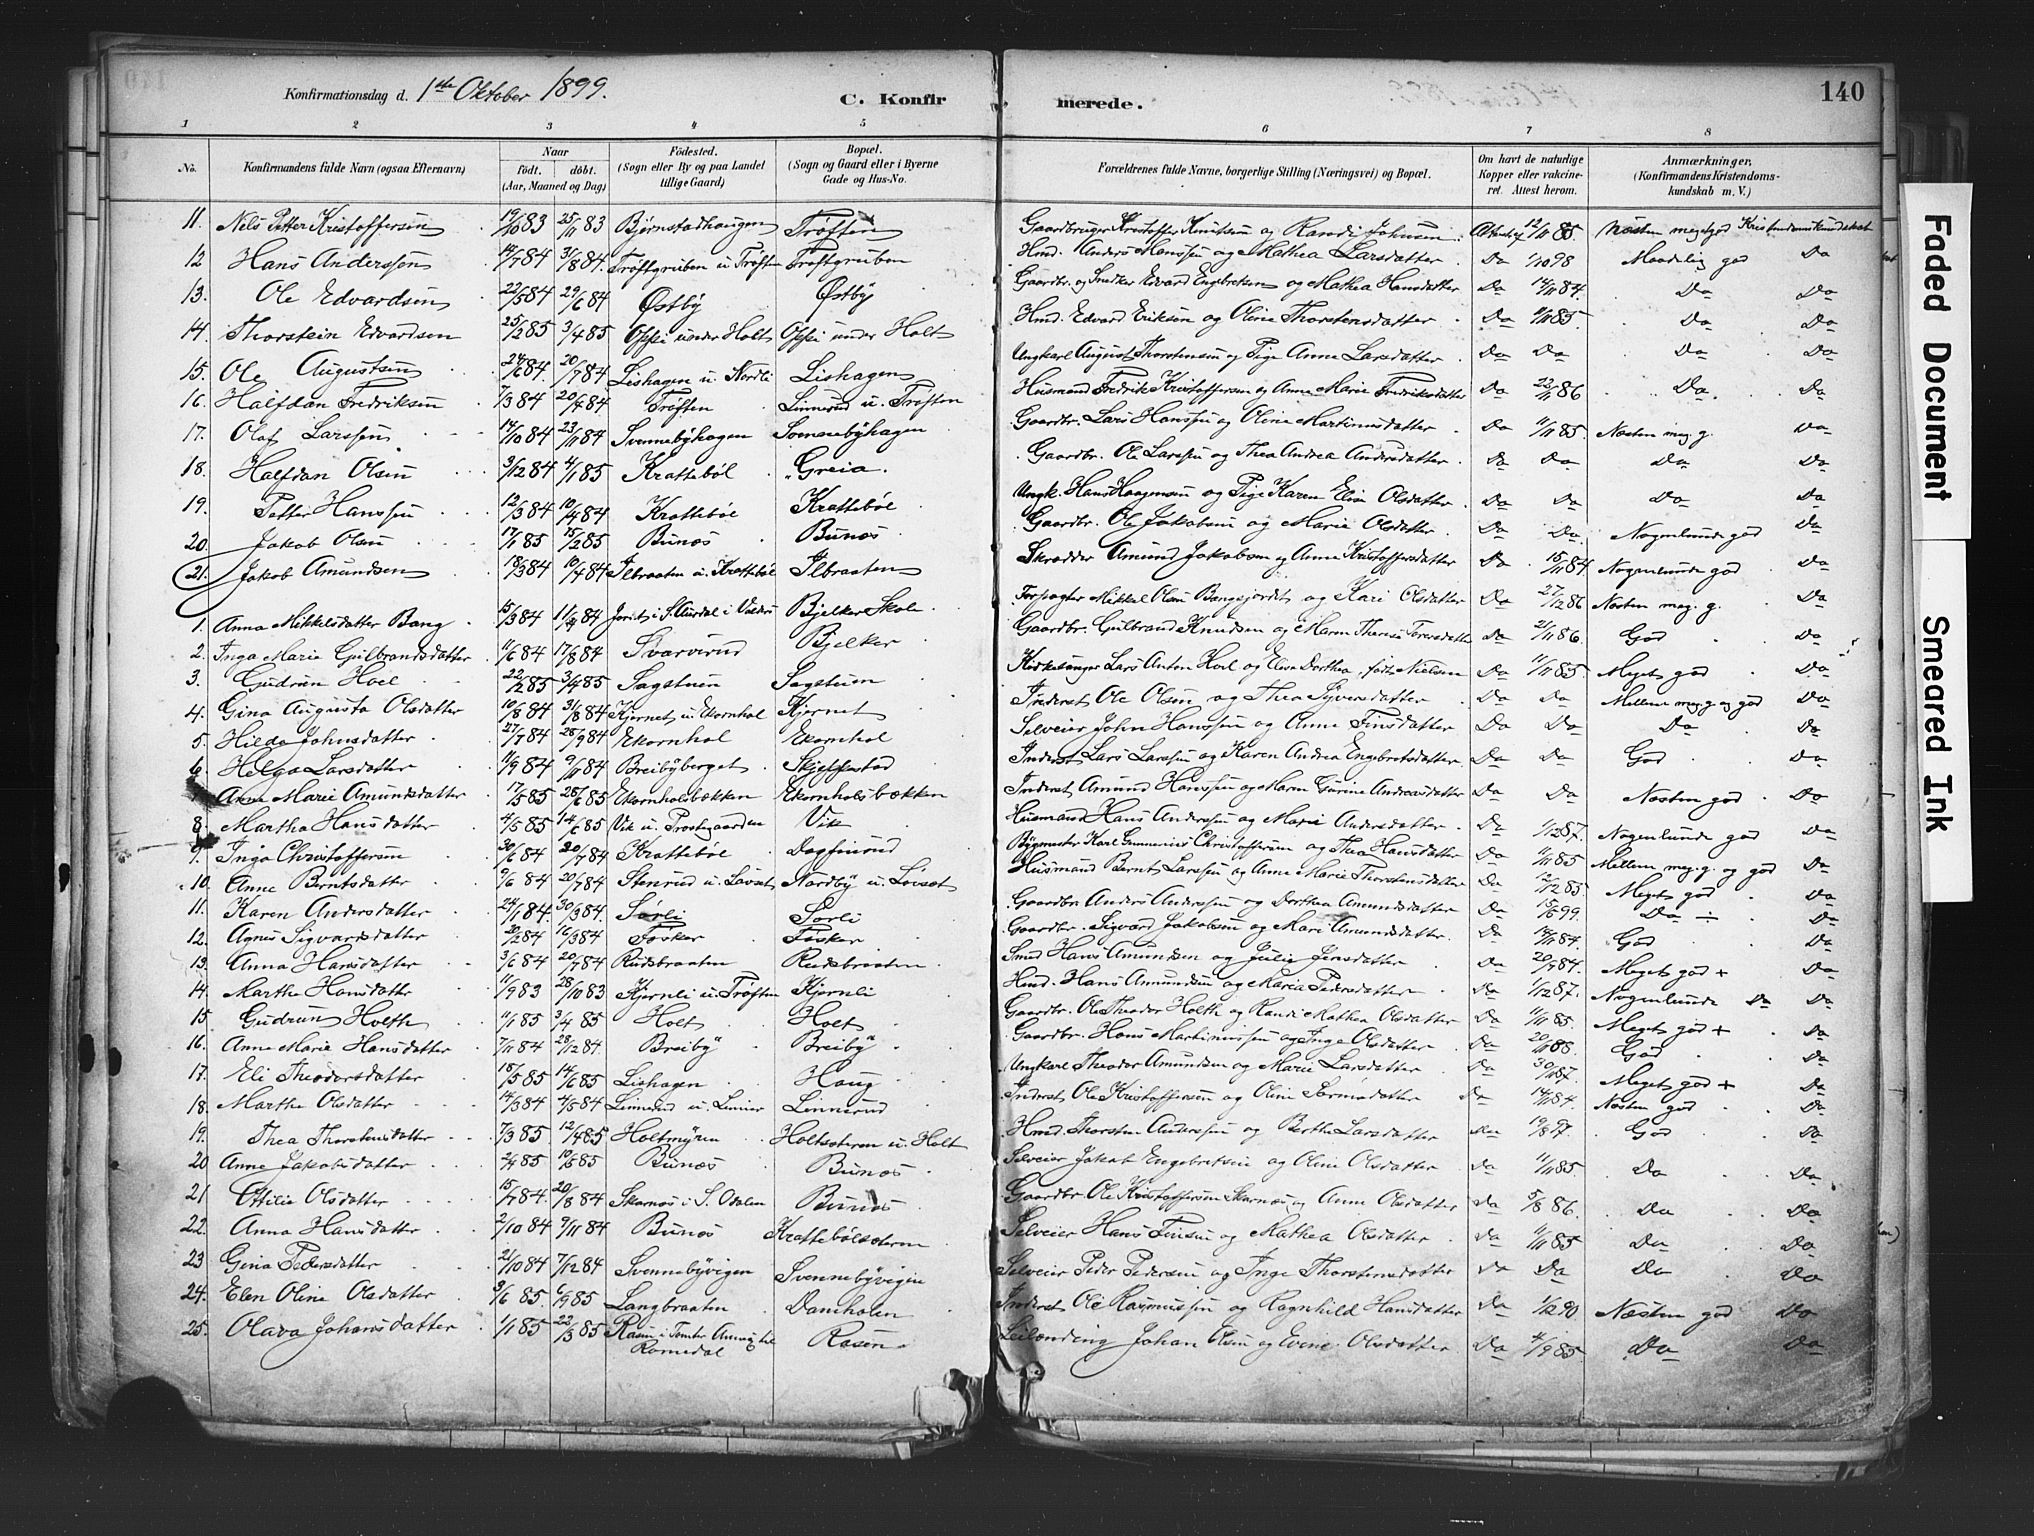 140
Konfirmationsdag d. 1ste Oktober 1899.
C. Konfir merede.
1 2 3 4 5 6 7 8
No.
Konfirmandens fulde Navn (ogsaa Efternavn)
Naar født. døbt. (Aar, Maaned og Dag)
Fødested. (Sogn eller By og paa Landet tillige Gaard)
Bopæl. (Sogn og Gaard eller i Byerne Gade og Hus-No.
Forældrenes fulde Navne, borgerlige Stilling (Næringsvei) og Bopæl.
Om havt de naturlige Kopper eller vakcineret. Attest herom.
Anmærkninger. (Konfirmandens Kristendomskundskab m. V.)
11. Nils Petter Kristoffersen 19/10 83 25/11 83 Bjørnstadhaugen Trøften Gaardbruger Kristoffer Knutsen og Randi Johnsen 12/11 85. Næsten meget god Kristendomskundskab
12 Hans Anderssen 14/7 84 31/8 84. Trøftgruben u. Trøften Trøftgruben Hmd. Anders Hanssen og Mathea Larsdatter Do 1/10 98 Maadelig god Do
13. Ole Edvardsen 22/5 84 29/6 84 Østby Østby Gaardbr. og Snedker Edvard Engebretsen og Mathea Hansdatter Do 14/11 84. Do Do
14. Thorstein Edvardsen 25/2 85 3/4 85 Oppi under Holt Oppi under Holt Hmd. Edvard Eriksen og Oline Thorstensdatter Do 11/11 85. Do Do
15. Ole Augustsen 24/6 84. 20/7 84 Lishagen u. Nordli Lishagen Ungkarl August Thorstensen og Pige Anne Larsdatter Do Do Do Do
16. Halfdan Fredriksen 7/3 84 20/4 84 Trøften Linnerud u. Trøften Husmand Fredrik Kristoffersen og Anne Marie Fredriksdatter Do 22/11 86 Do. Do
17. Olaf Larssen 14/10 84 23/11 84 Svennebyhagen Svennebyhagen Gaardbr. Lars Hanssen og Oline Martinusdatter Do 11/11 85. Næsten meg. g. Do
18. Halfdan Olsen 3/12 84 4/1 85 Krattebøl Greia. Gaardbr. Ole Larssen og Thea Andrea Andersdatter Do Do Do Do
19. Petter Hanssen 12/3 84 10/4 84 Krattebøl Krattebøl Ungk. Hans Haagensen og Pige Karen Elise Olsdatter Do Do Do Do
20. Jakob Olsen 17/1 85 15/2 85 Bunæs Bunæs Gaardbr. Ole Jakobsen og Marie Olsdatter Do Do. Nogenlunde god Do
21. Jakob Amundsen 18/3 84 10/4 84 Ilbraaten u. Krattebøl Ilbraaten Skrædder Amund Jakobsen og Anne Kristoffersdatter Do 15/11 84 Nogenlunde god Do
1. Anna Mikkelsdatter Bang 15/3 84 Bjelker Skole Forpagter Mikkel Olsen Bangsjordet og Kari Olsdatter Do 27/12 86 Næsten meg. g. Do
2. Inga Marie Gulbrandsdatter 11/6 84 17/8 84 Svarverud Bjelker Gaardbr. Gulbrand Knudsen og Maren Therese Do 21/11 86. God Do
3. Gudrun Hoel 22/2 85 3/4 85 Sagstuen Sagstuen Kirkesanger Lars Anton Hoel og Elise Dorthea, født Nielsen Do 11/11 85 Meget god Do
4. Gina Augusta Olsdatter 10/8 84 31/8 84 Kjernet u. Ekornhol Kjernet Inderst Ole Olsen og Thea Syversdatter Do Do Mellem meg. g. og god Do
5. Hilda Johnsdatter 27/7 84 28/9 84 Ekornhol Ekornhol Selveier John Hanssen og Anne Finsdatter Do Do Do Do
6. Helga Larsdatter 11/9 84 9/11 84 Breibyberget Skjefstad Inderst Lars Larssen og Karen Andrea Engebretsdatter Do Do God Do
Anne Marie Amundsdatter 17/5 85 28/6 85 Ekornholsbækken Ekornholsbækken Inderst Amund Hanssen og Maren Gurine Andreasdatter Do Do Næsten god Do
8. Martha Hansdatter 4/5 85 14/6 85 Vik u. Prestegaarden Vik Husmand Hans Anderssen og Marie Andersdatter Do 1/12 87. Nogenlunde god Do
9. Inga Christoffersen 30/6 84 20/7 84 Krattebøl Dagfinrud Bygmester Karl Gunnerius Christoffersen og Thea Hansdatter Do 11/11 85 Mellem meg. g. og god Do
10. Anne Berntsdatter 9/6 84 20/7 84 Stenrud u. Løvset Nordby u. Løvset Husmand Bernt Larssen og Anne Marie Thorstensdatter Do 12/12 85. Meget god Do
11. Karen Andersdatter 24/1 84. 30/3 84. Sørli Sørli Gaardbr. Anders Anderssen og Dorthea Amundsdatter Do 15/6 99. Do ÷ Do
12. Agnes Sigvardsdatter 20/2 84 16/3 84 Fosker Fosker Gaardbr. Sigvard Jakobsen og Mari Amundsdatter. Do 14/11 84. God Do
13. Anna Hansdatter 3/6 84 20/7 84 Rudsbraaten Rudsbraaten Smed Hans Amundsen og Julie Jensdatter Do 20/7 84. Meget god + Do
14. Marthe Hansdatter 11/9 83 28/10 83 Kjernli u. Trøften Kjernli Hmd. Hans Amundsen og Maria Pedersdatter Do 1/12 87. Nogenlunde Do Do
15 Gudrun Holth 11/1 85 3/4 85 Holt Holt Gaardbr. Ole Theodor Holth og Randi Mathea Olsdatter Do 11/11 85. Meget god + Do
16. Anne Marie Hansdatter 7/11 84 28/12 84. Breiby Breiby Gaardbr. Hans Martinussen og Inge Olsdatter Do 20/11 88. God Do
17. Eli Theodorsdatter 18/5 85 14/6 85 Lishagen Haug Ungkarl Theodor Amundsen og Marie Larsdatter Do 30/11 87. Meget god + Do
18. Marthe Olsdatter 14/3 84 4/5 84 Linnerud u. Linner Linnerud Inderst Ole Kristoffersen og Oline Do 14/11 84. Næsten god Do
19. Thea Thorstensdatter 7/3 85. 12/4 85 Holtmyren Holtsæteren u. Holt Hmd. Thorsten Anderssen og Berthe Larsdatter Do 19/8 97. God Do
20 Anne Jakobsdatter 2/4 85 10/5 85 Bunæs Bunæs Selveier Jakob Engebretsen og Oline Olsdatter Do 11/11 85 Do Do
21 Ottilie Olsdatter 15/7 84. 20/8 84 Skarnæs i S. Odalen Bunæs Gaardbr. Ole Kristoffersen Skarnæs og Anne Olsdatter Do 5/8 86. Do Do
22. Anna Hansdatter 2/10 84 9/11 84 Bunæs Krattebølsæteren Selveier Hans Finsen og Mathea Olsdatter Do 11/11 85 Do Do
23 Gina Pedersdatter 21/10 84 7/12 84 Svennebyvigen Svennebyvigen Selveier Peder Pedersen og Inge Thorstensdatter Do Do Do Do
24. Elen Oline Olsdatter 3/6 85. 6/9 85 Langbraaten Damholen Inderst Ole Rasmussen og Ragnhild Hansdatter Do 1/12 90 Næsten god Do
25. Olava Johansdatter 1/1 85 22/3 85 Rasen i Tomter Annex til Romedal Rasen Leilending Johan Olsen og Evene Olsdatter Do 4/9 85. Do Do
Faded Document
Smeared Ink